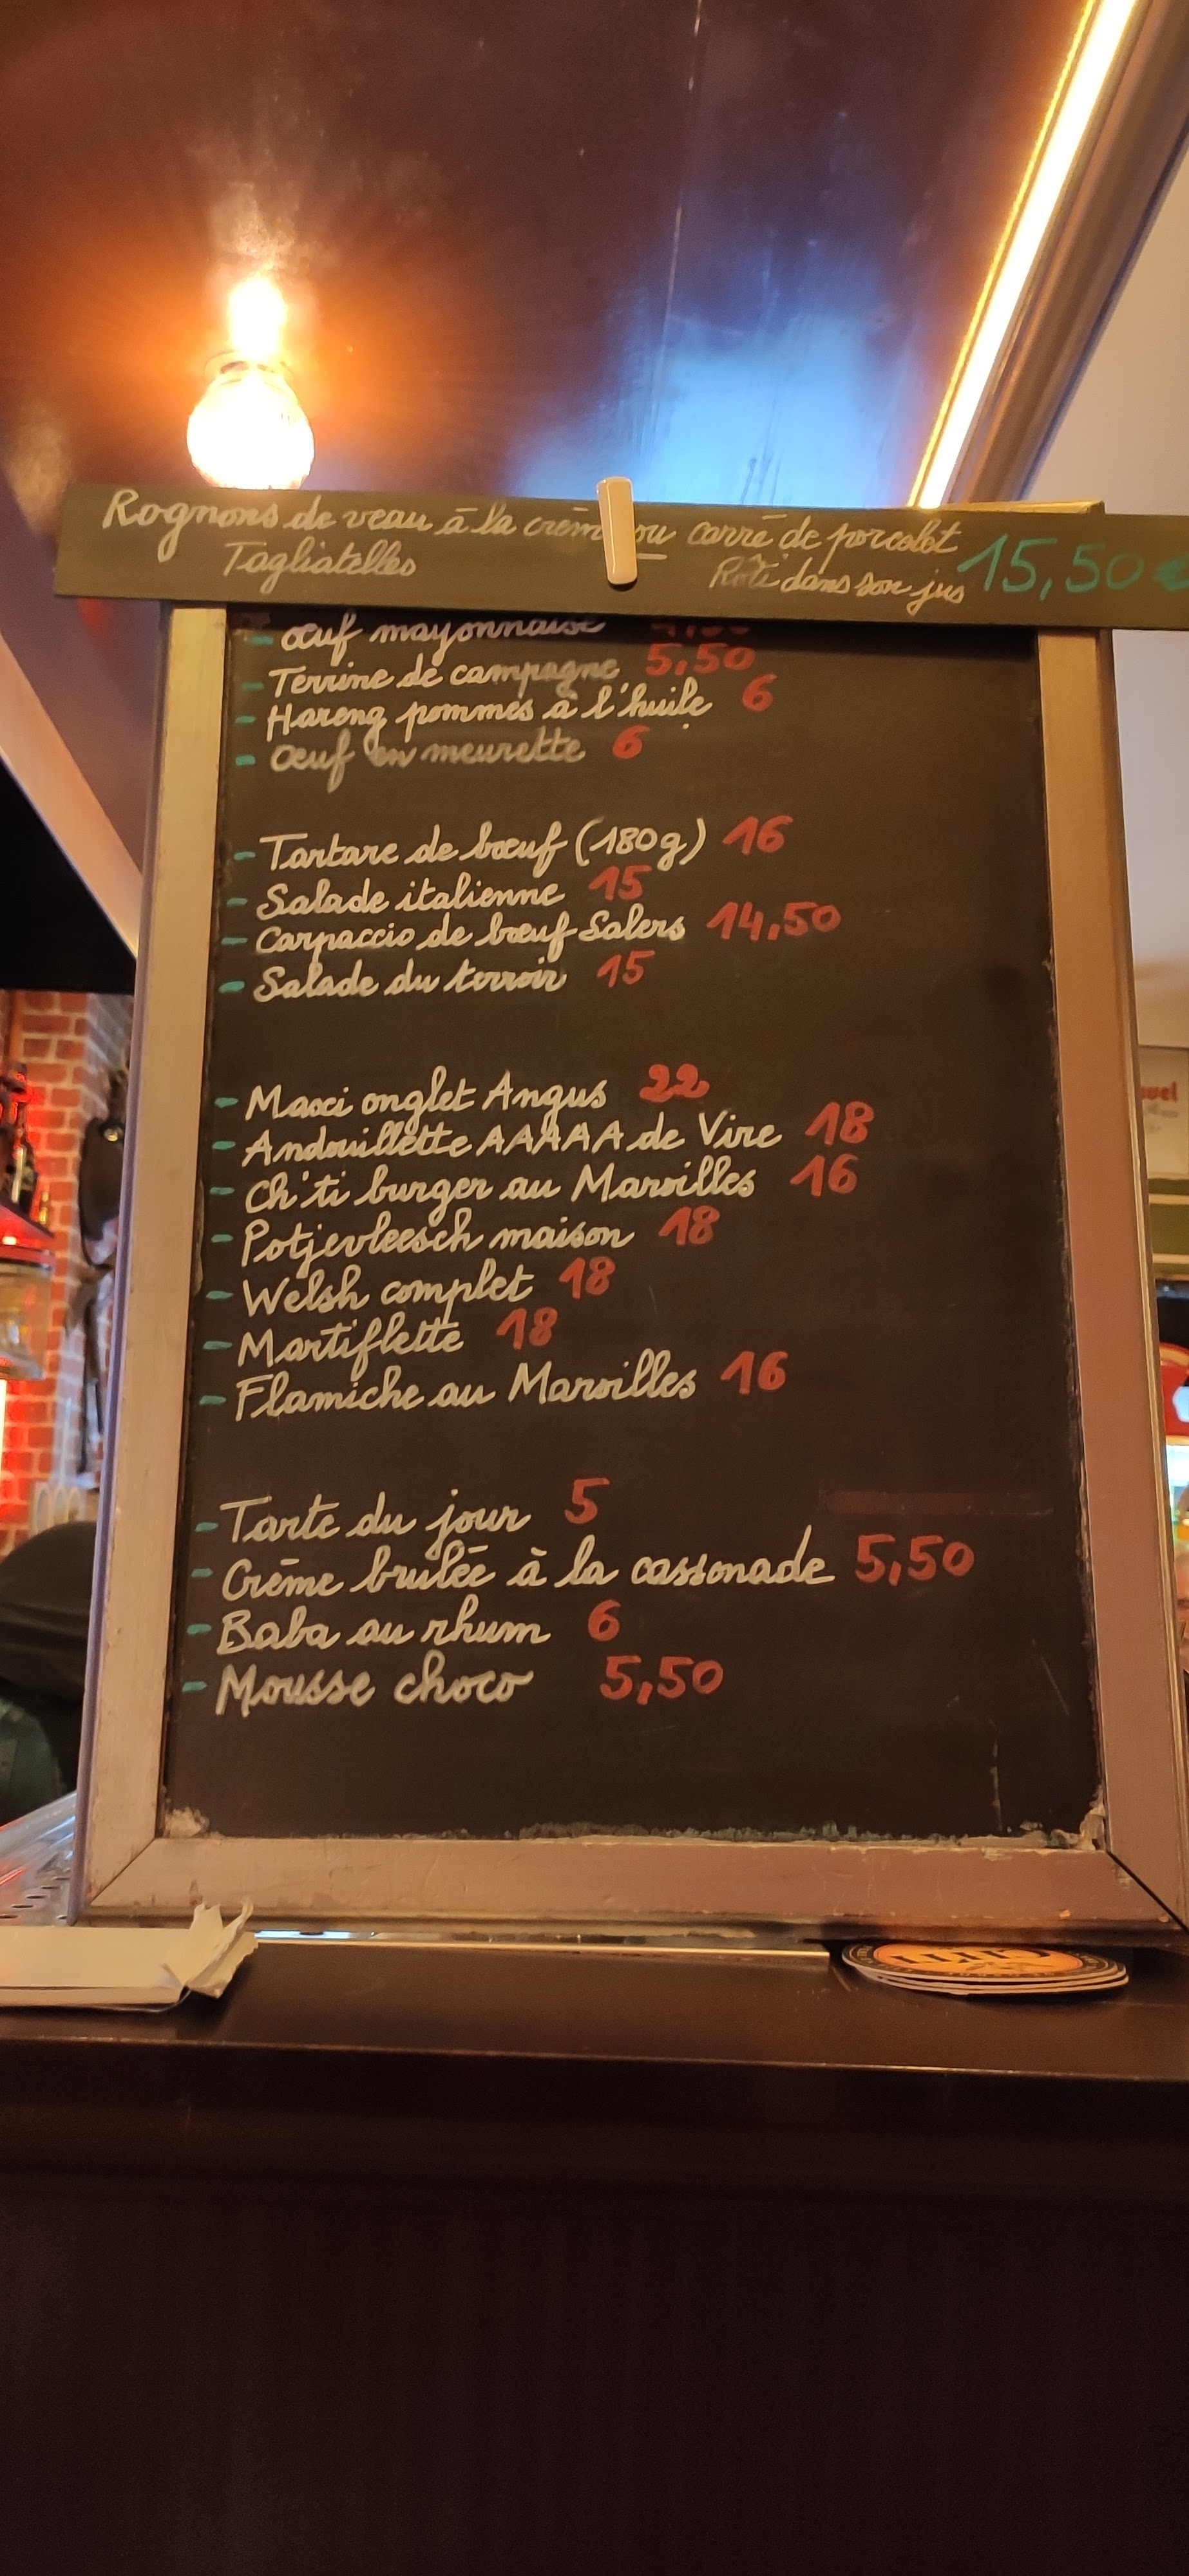 Rognons de veau à la crème ou carré de porcelet
Tagliatelles Rôti dans son jus 15,50 €
- œuf mayonnaise
- Terrine de campagne 5,50
- Hareng pommes à l'huile 6
- œuf en meurette 6
- Tartare de bœuf (180g) 16
- Salade italienne 15
- Carpaccio de bœuf Salers 14,50
- Salade du terroir 15
- Maxi onglet Angus 22
- Andouillette AAAAA de Vire 18
- Ch'ti burger au Maroilles 16
- Potjevleesch maison 18
- Welsh complet 18
- Martiflette 18
- Flamiche au Maroilles 16
- Tarte du jour 5
- Crème brulée à la cassonade 5,50
- Baba au rhum 6
- Mousse choco 5,50